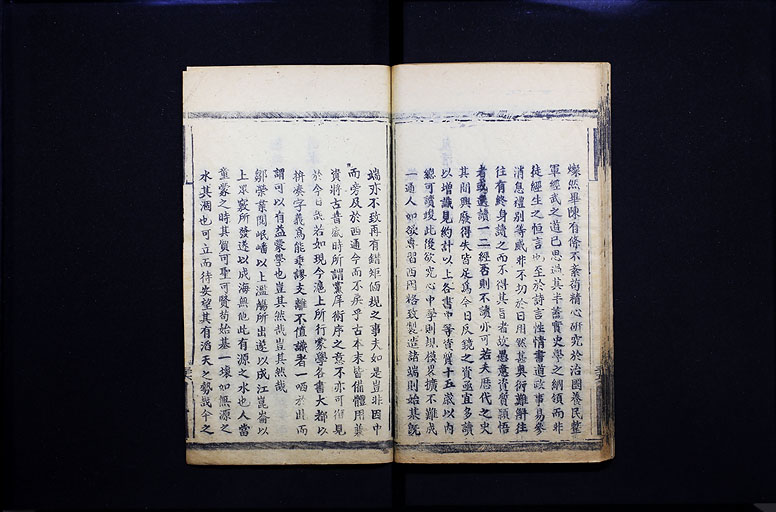 燦然畢陳有條不紊苟精心研究於治國養民整
軍經武之道已思過其半蓋實史學之綱領而非
徒經生之恒言也至於詩言性情書道政事易參
消息禮別等威非不切於日用然其奧衍難解往
往有終身讀之而不得其旨者故愚意資質穎悟
者或選讀一二經否則不讀亦可若夫歷代之史
其間興廢得失皆足爲今日反鏡之資亟宜多讀
以增識見約計以上各書中等資質十五歲以內
總可讀竣此後欲究心中學則規模畧擴不難成
一通人如欲專習西國格致製造諸端則始基旣
端亦不致再有錯矩偭規之事夫如是豈非因中
而旁及於西通今而不戾乎古本末皆備體用兼
資將古昔盛時所謂黨庠術序之意不亦可復見
於今日哉若如現今滬上所行蒙學各書大都以
拚湊字義爲能乖謬支離不值識者一哂於此而
謂可以有益蒙學也豈其然哉豈其然哉
鄒滎業聞岷嶓以上濫觴所出遂以成江崑崙以
上眾竅所發遂以成海無他此有源之水也人當
童蒙之時其質可聖可賢苟始基一壞如無源之
水其涸也可立而待安望其有滔天之勢哉今之